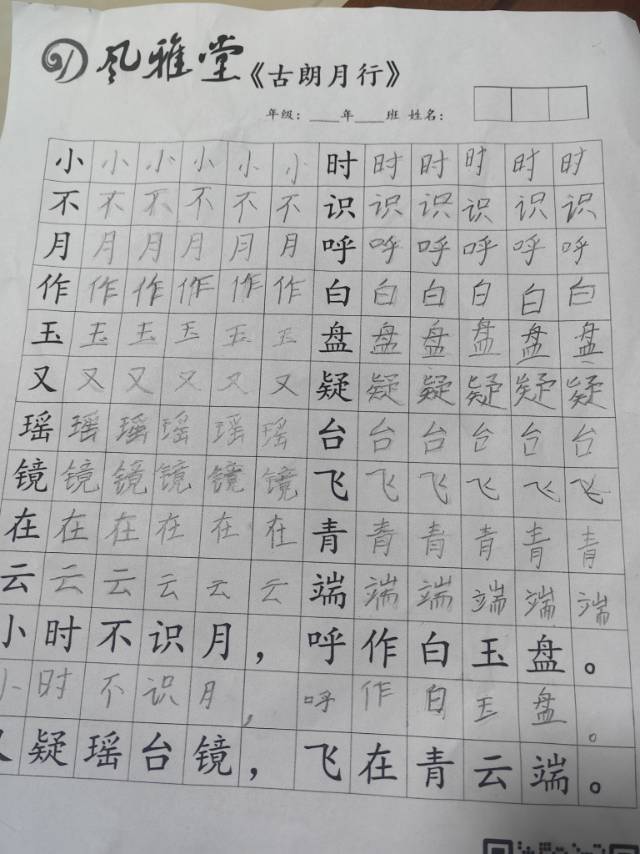 风雅堂《古朗月行》
年级：____年____班 姓名：
小小小小小小时时时时时时
不不不不不不识识识识识识
月月月月月月呼呼呼呼呼呼
作作作作作作白白白白白白
玉玉玉玉玉玉盘盘盘盘盘盘
又又又又又又疑疑疑疑疑疑
瑶瑶瑶瑶瑶瑶台台台台台台
镜镜镜镜镜镜飞飞飞飞飞飞
在在在在在在青青青青青青
云云云云云云端端端端端端
小时不识月，呼作白玉盘。
小时不识月，呼作白玉盘。
又疑瑶台镜，飞在青云端。